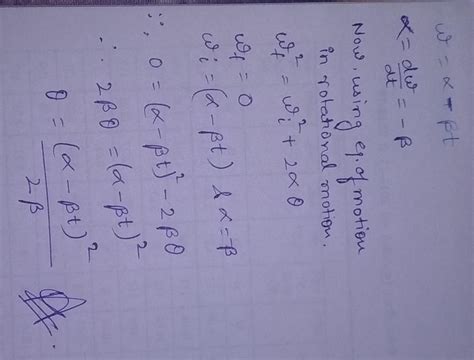 ω = α - βt
α = dω/dt = -β
Now, using eq. of motion
in rotational motion.
ω_f² = ω_i² + 2αθ
ω_f = 0
ω_i = (α - βt) & α = -β
∴ 0 = (α - βt)² - 2βθ
∴ 2βθ = (α - βt)²
θ = (α - βt)² / 2β